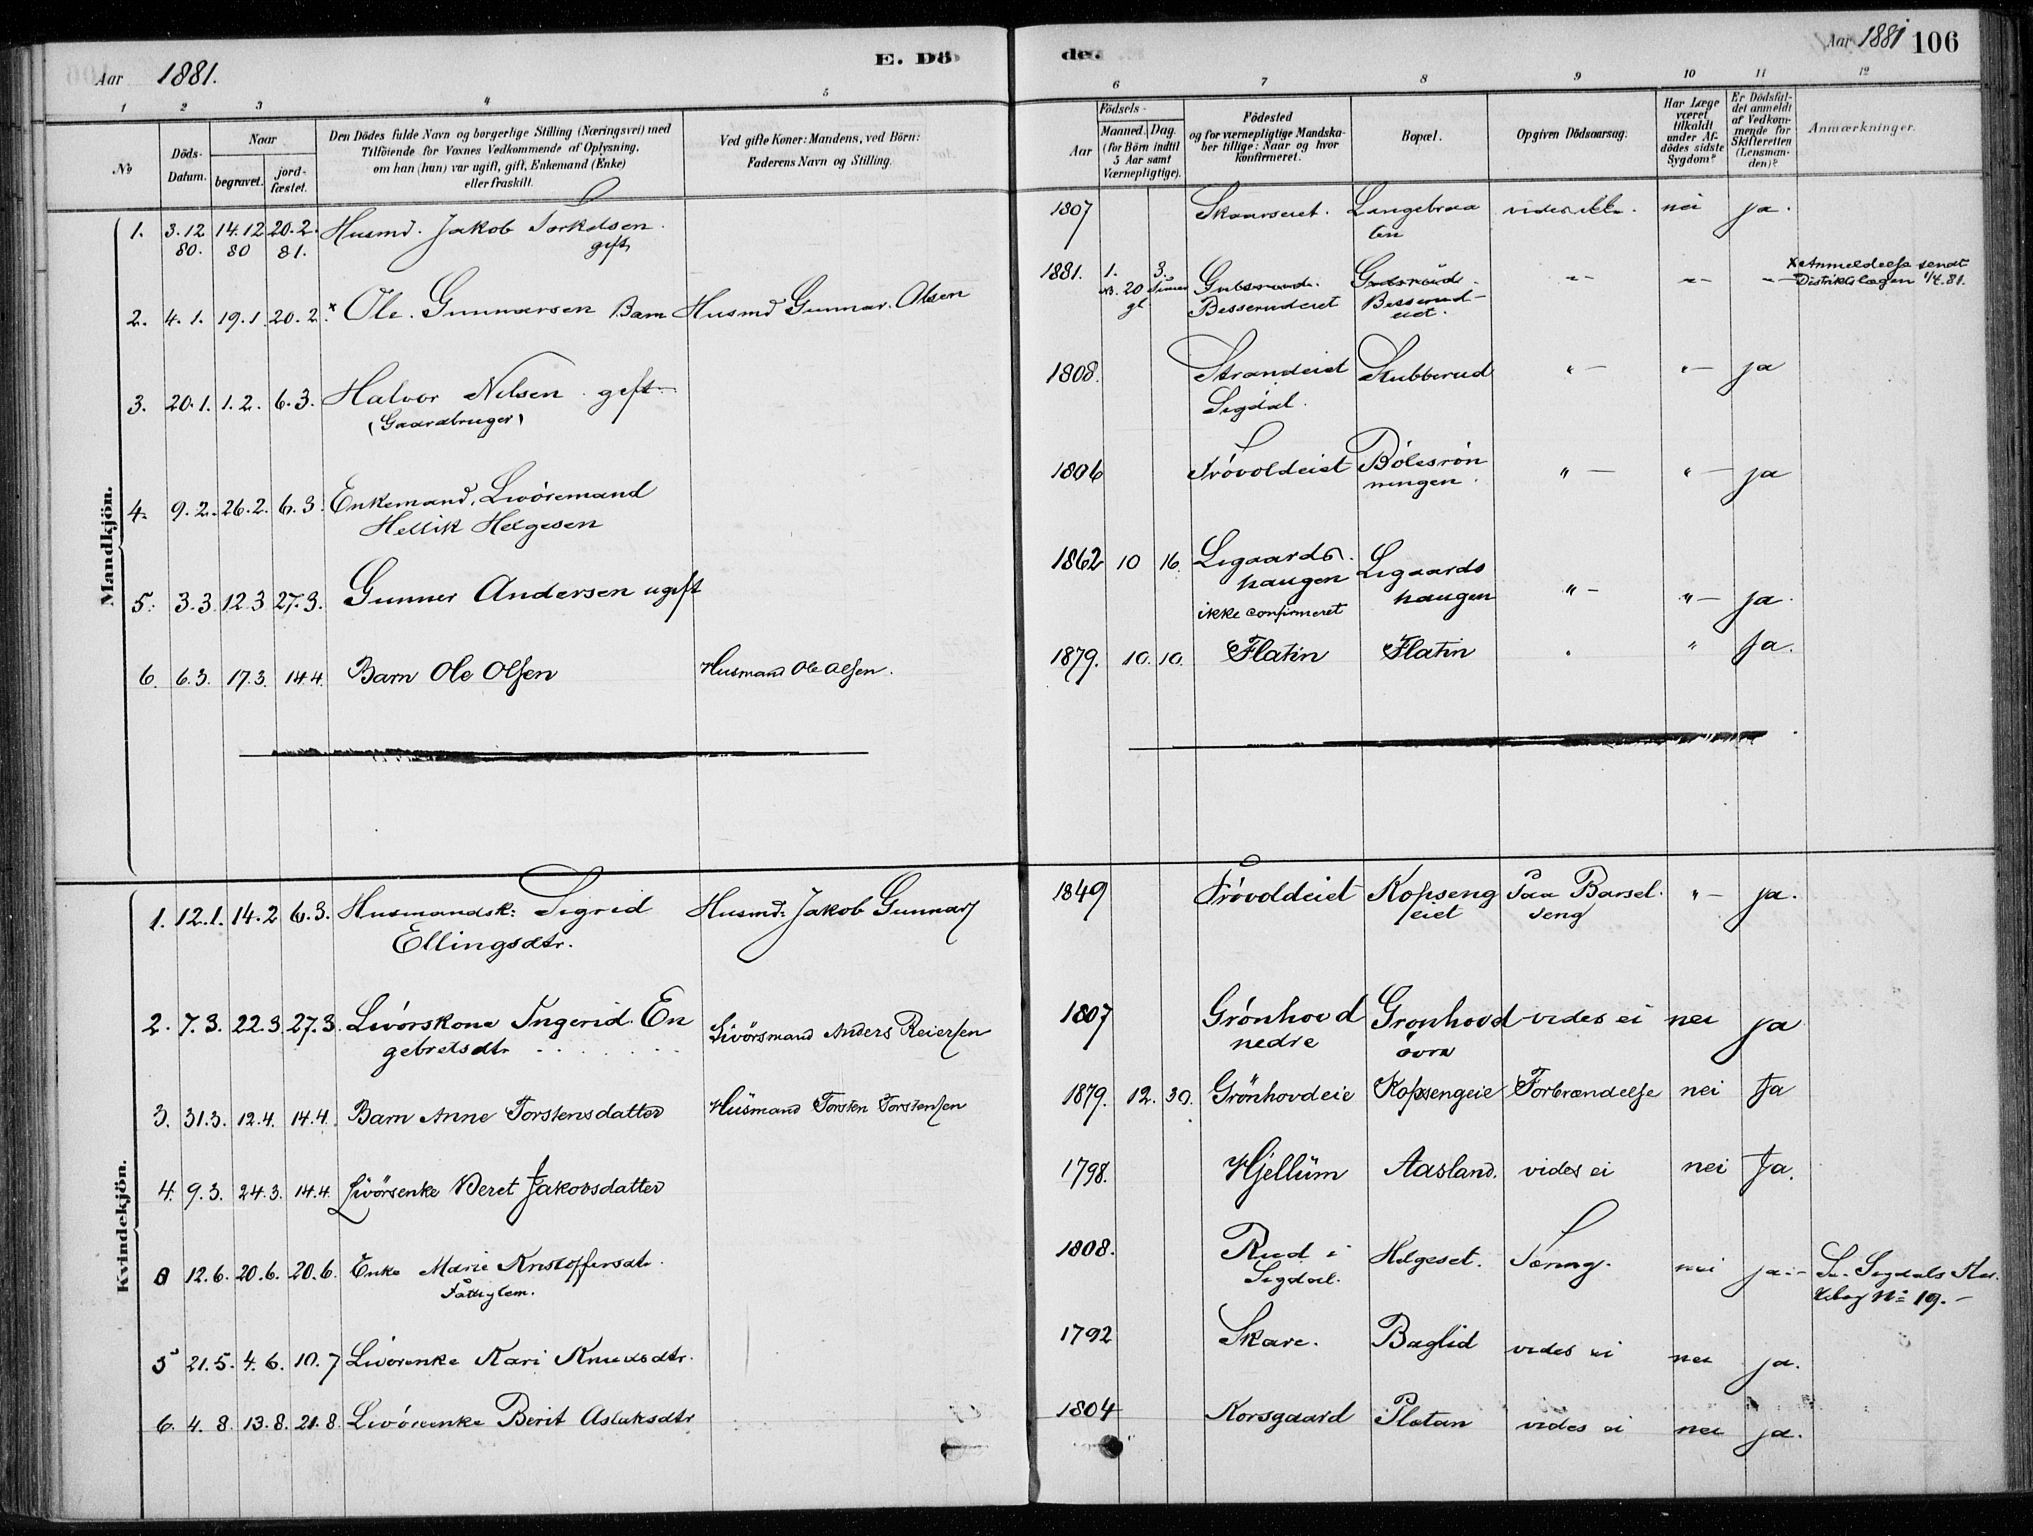 Aar 1881. E. Dö de. Aar 1881 106
1 2 3 4 5 6 7 8 9 10 11 12
No
Döds-Datum.
Naar
begravet.
jord-fæstet.
Den Dödes fulde Navn og borgerlige Stilling (Næringsvei) med
Tilföiende for Voxnes Vedkommende af Oplysning,
om han (hun) var ugift, gift, Enkemand (Enke)
eller fraskilt.
Ved gifte Koner: Mandens, ved Börn:
Faderens Navn og Stilling.
Födsels-
Aar
Maaned. Dag.
(for Börn indtil
5 Aar samt
Værnepligtige).
Födested
og for værnepligtige Mandska-
ber tillige: Naar og hvor
konfirmeret.
Bopæl.
Opgiven Dödsaarsag.
Har Læge
været
tilkaldt
under Af-
dödes sidste
Sygdom?
Er Dödsfal-
det anmeldt
af Vedkom-
mende for
Skifteretten
(Lensman-
den)?
Anmærkninger.
Mandkjön.
1. 3.12 80. 14.12 80 20.2. 81. Husmd. Jakob Torkelsen gift 1807 Skaarseiet. Langebraaten vides ikke. nei ja.
2. 4.1. 19.1 20.2. × Ole. Gunnarsen Barn Husmd Gunnar. Olsen 1881. 1. 3. 20 Timer gl Gubsrud. Besseruderet Besserud-eiet. "- "- "- × Anmeldelse sendt Distriktslægen 1/4.81.
3. 20.1. 1.2. 6.3. Halvor Nilsen gift (Gaardbruger) 1808. Strandeiet Sigdal. Stubberud "- "- ja
4. 9.2. 26.2. 6.3. Enkemand, Livöremand Hellik Helgesen 1806 Frövoldeiet Bölesrönningen. "- "- ja
5. 3.3. 12.3 27.3. Gunner Andersen ugift 1862 10 16. Ligaardshaugen ikke confirmeret Ligaardshaugen "- "- ja.
6. 6.3. 17.3. 14.4. Barn Ole Olsen Husmand Ole Olsen. 1879. 10. 10. Flatin Flatin " " Ja.
Kvindekjön.
1. 12.1. 14.2 6.3. Husmandsk: Sigrid Ellingsdtr. Husmd: Jakob Gunnars 1849 Frövoldeiet Kopsengeiet Paa Barselseng "- ja.
2. 7.3. 22.3 27.3. Livörskone Ingerid Engebretsdtr Livörsmand Anders Reiersen 1807 Grönhovd nedre Grönhovd övre vides ei nei ja
3. 31.3. 12.4. 14.4. Barn Anne Torstensdatter Husmand Torsten Torstensen 1879. 12. 30. Grönhovdeie Kopsengeie Forbrændelse nei Ja
4. 9.3. 24.3. 14.4. Livörsenke Beret Jakobsdatter 1798. Hjellum Aasland. vides ei nei Ja.
12.6. 20.6. 20.6. Enke Marie Kristoffersdtr. Fattiglem. 1808. Rud i Sigdal. Helgeset. Tæring. nei ja.- Se Sigdals No 19.-
5 21.5. 4.6. 10.7 Livörenke Kari Knudsdtr. 1792 Skare. Baglid vides ei nei ja.
6. 4.8. 13.8. 21.8. Livörenke Berit Aslaksdtr 1804 Korsgaard Platan vides ei nei ja.